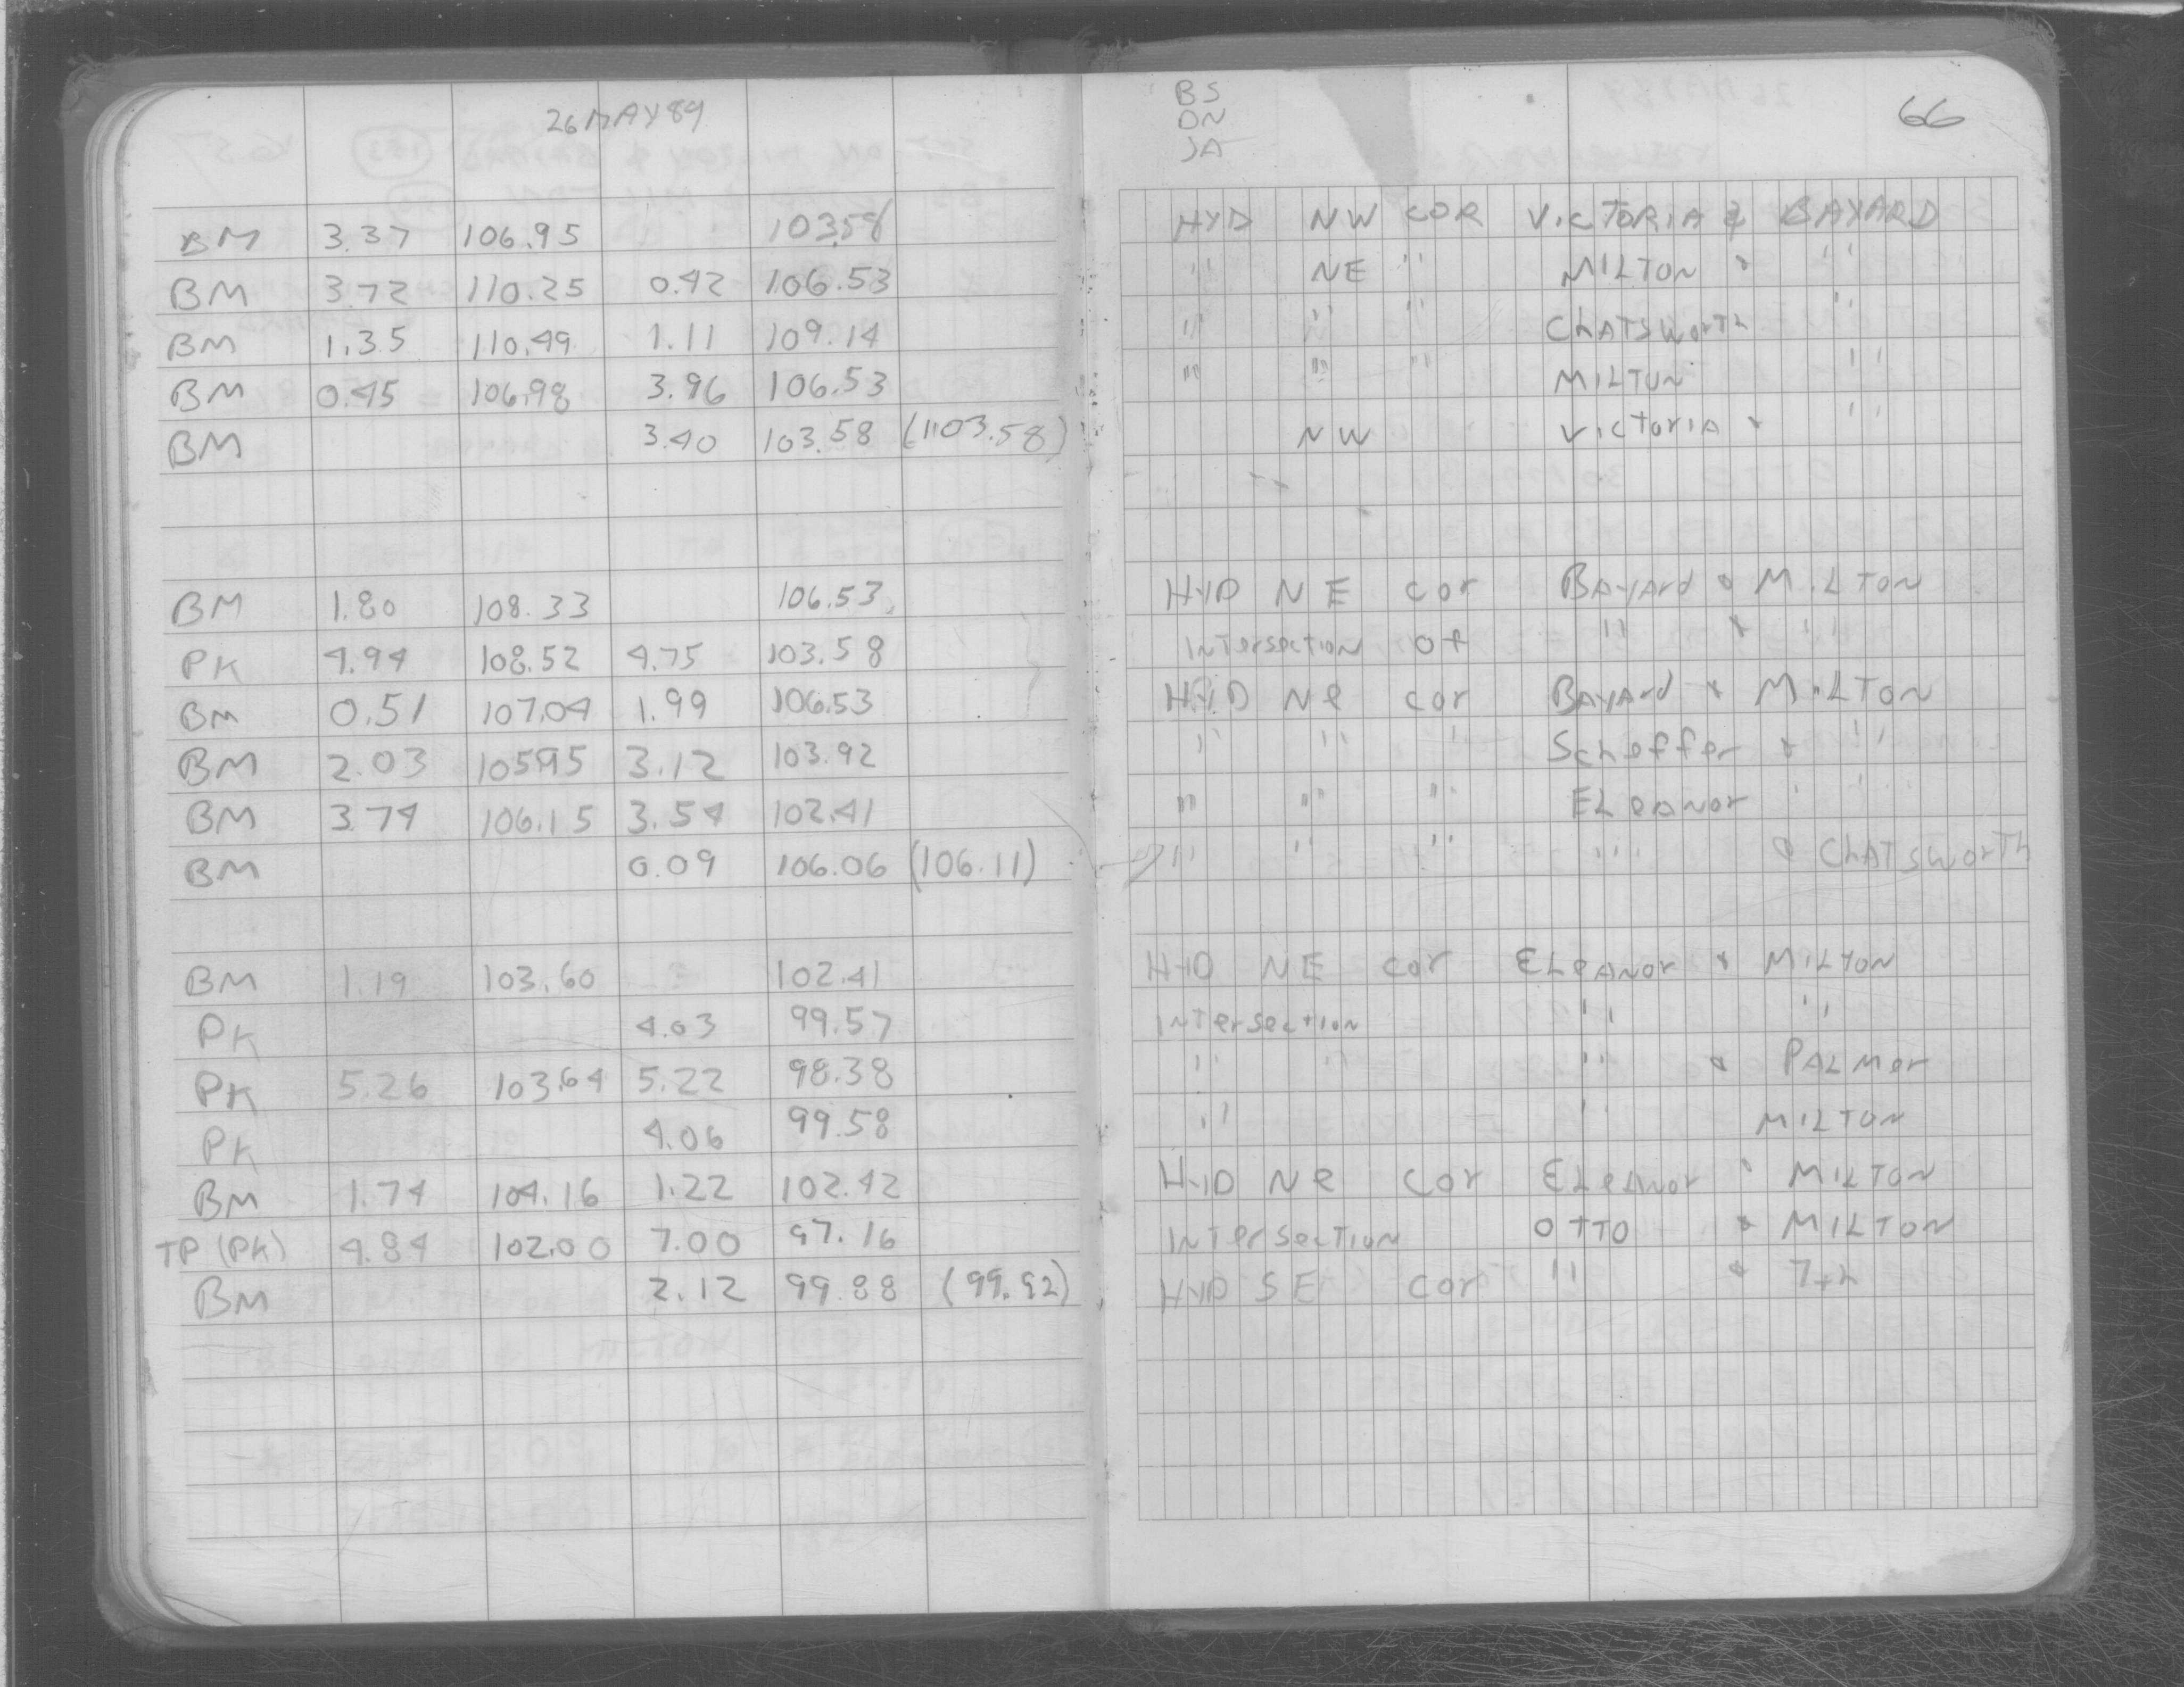 26 MAY 89
BM 3.37 106.95 103.58
BM 3.72 110.25 0.42 106.53
BM 1.35 110.49 1.11 109.14
BM 0.45 106.98 3.96 106.53
BM 3.40 103.58 (103.58)
BM 1.80 108.33 106.53
PK 4.94 108.52 4.75 103.58
BM 0.51 107.04 1.99 106.53
BM 2.03 105.95 3.12 103.92
BM 3.74 106.15 3.54 102.41
BM 0.09 106.06 (106.11)
BM 1.19 103.60 102.41
PK 4.03 99.57
PK 5.26 103.64 5.22 98.38
PK 4.06 99.58
BM 1.74 104.16 1.22 102.42
TP (PK) 4.84 102.00 7.00 97.16
BM 2.12 99.88 (99.92)
BS
DN
JA
66
HYD NW COR VICTORIA & BAYARD
" NE " MILTON & "
" " " CHATSWORTH "
" " " MILTON "
NW VICTORIA & "
HYD NE COR BAYARD & MILTON
INTERSECTION OF " & "
HYD NE COR BAYARD & MILTON
" " " SCHEFFER & "
" " " ELEANOR " "
" " " " & CHATSWORTH
HYD NE COR ELEANOR & MILTON
INTERSECTION " "
" " " & PALMER
" " MILTON
HYD NE COR ELEANOR & MILTON
INTERSECTION OTTO & MILTON
HYD SE COR " & 7th